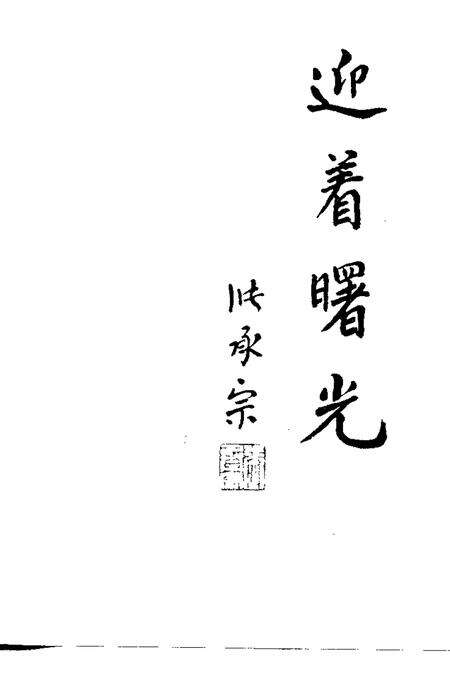 迎着曙光
张承宗